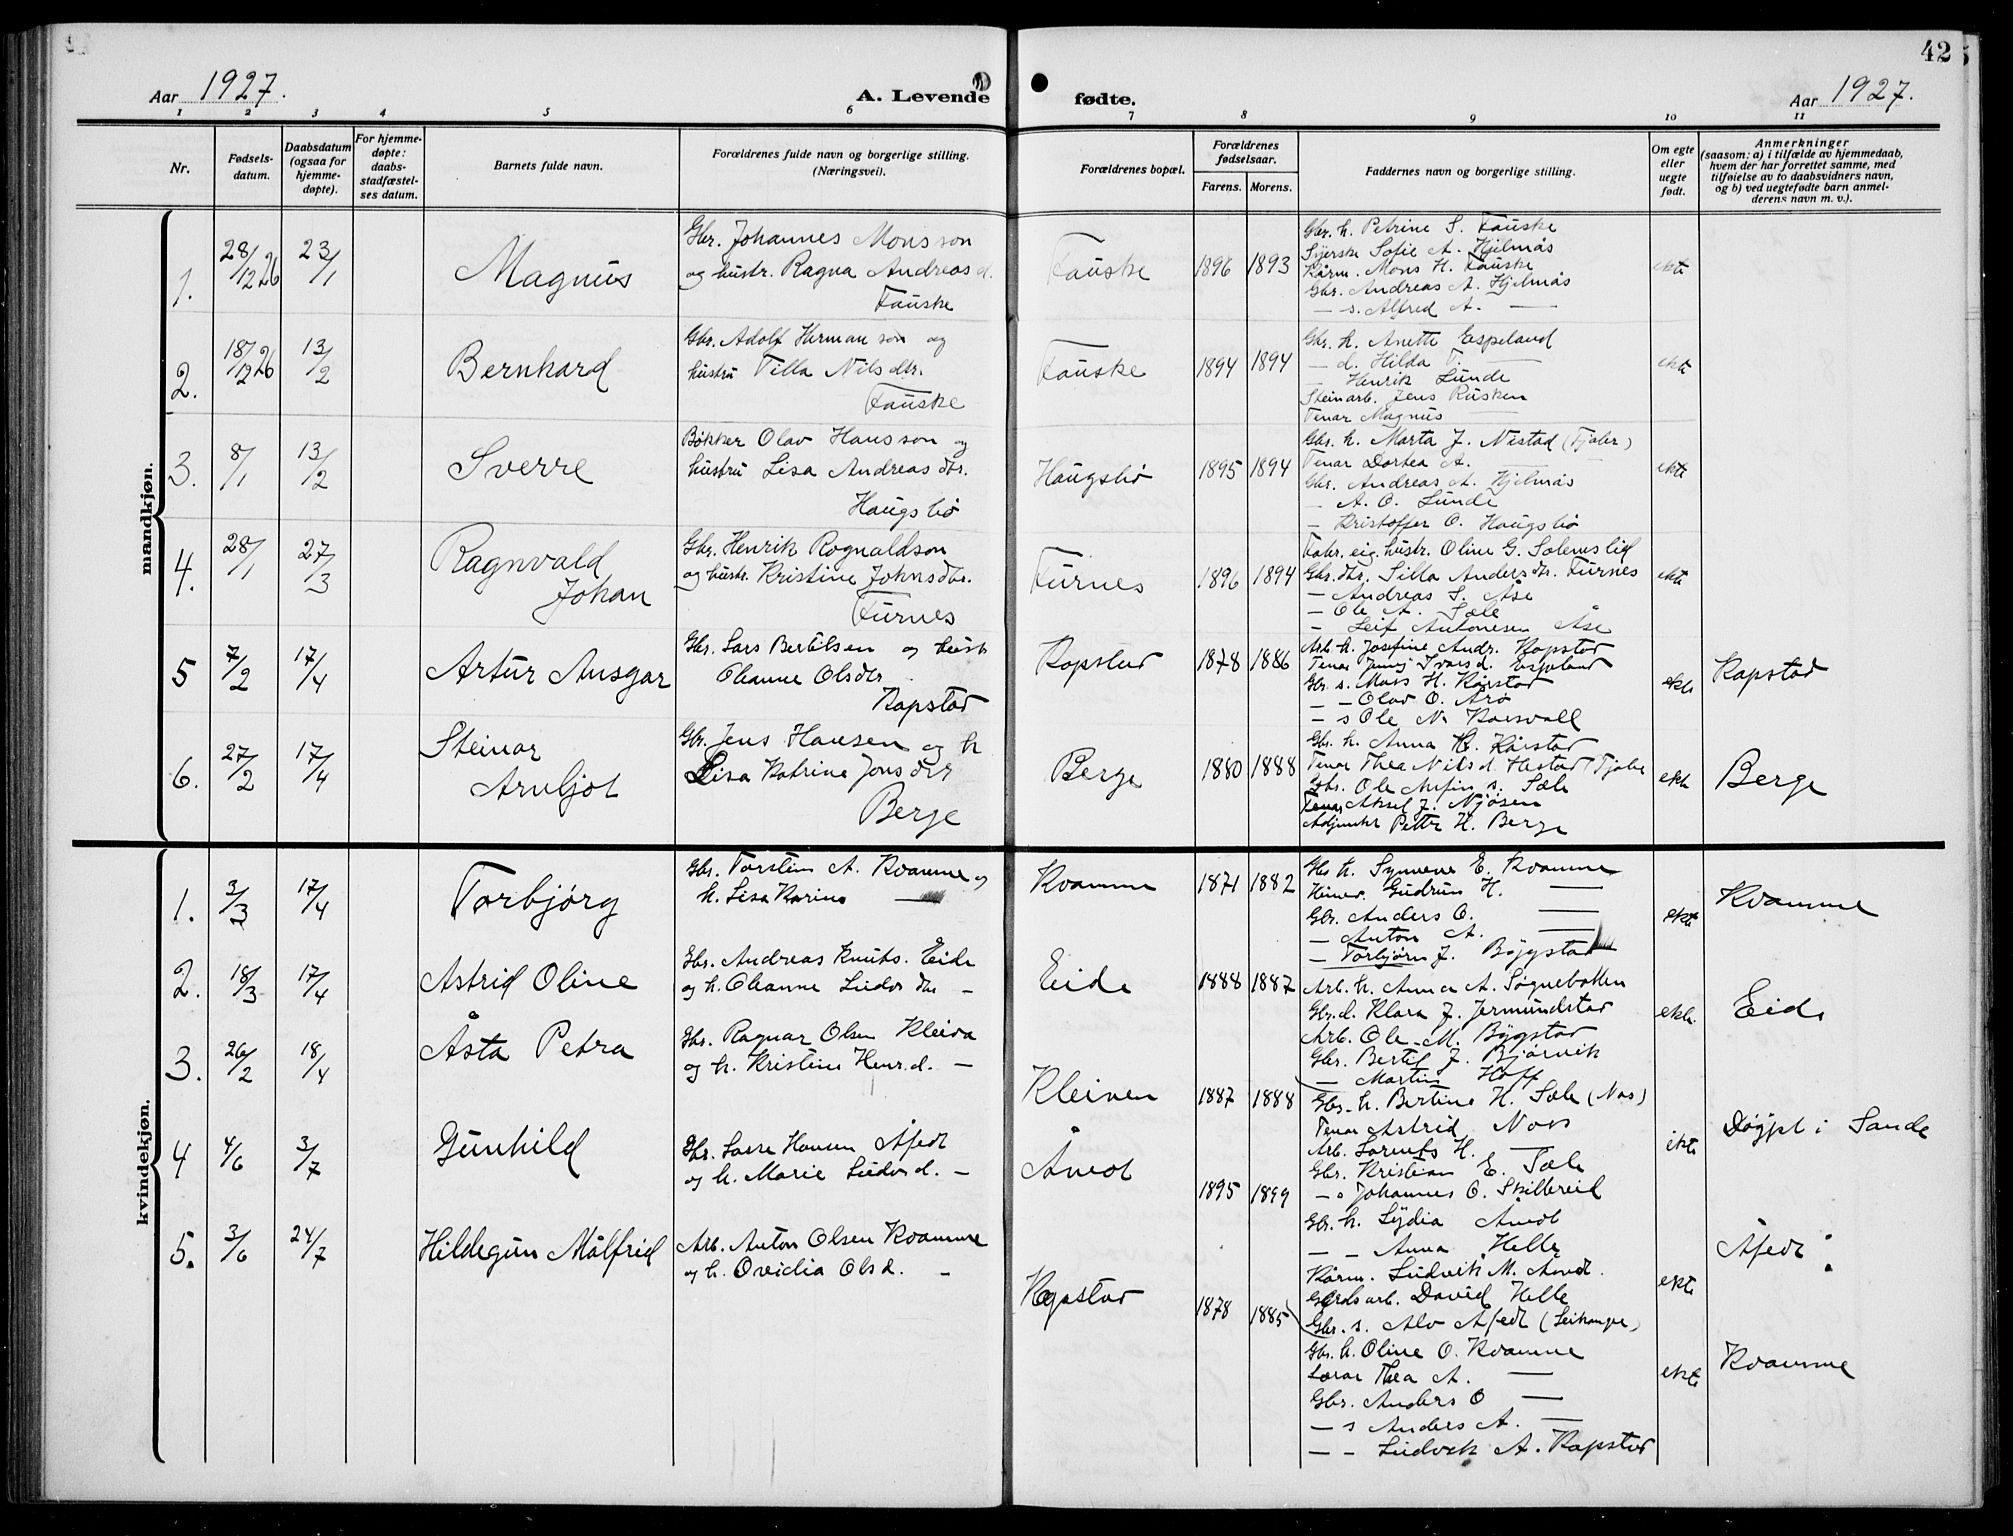 42
Aar 1927.
A. Levende fødte.
Aar 1927.
1 2 3 4 5 6 7 8 9 10 11
Nr.
Fødsels-
datum.
Daabsdatum
(ogsaa for
hjemme-
døpte).
For hjemme-
døpte:
daabs-
stadfæstel-
ses datum.
Barnets fulde navn.
Forældrenes fulde navn og borgerlige stilling.
(Næringsvei).
Forældrenes bopæl.
Forældrenes
fødselsaar.
Farens. Morens.
Faddernes navn og borgerlige stilling.
Om egte
eller
uegte
født.
Anmerkninger
(saasom: a) i tilfælde av hjemmedaab,
hvem der har forrettet samme, med
tilføielse av to daabsvidners navn,
og b) ved uegtefødte barn anmel-
derens navn m. v.).
mandkjøn.
1. 28/12 26 23/1
Magnus
Gbr. Johannes Monsson
og hustr. Ragna Andreas d.
Fauske
Fauske 1896 1893
Gbr. h. Petrine S. Fauske
Syerske Sofie A. Hjelmås
Kårm. Mons H. Fauske
Gbr. Andreas A. Hjelmås
— s. Alfred A. —
ekte
2. 18/12 26 13/2
Bernhard
Gbr. Adolf Herman son og
hustru Tilla Nilsdtr.
Fauske
Fauske 1894 1894
Gbr. h. Anette Espeland
— d. Hilda T. —
— Henrik Lunde
Steinarb. Jens Rusken
Tenar Magnus —
ekte
3. 8/1 13/2
Sverre
Bøkker Olav Hansson og
hustru Lisa Andreas dtr.
Haugsbø
Haugsbø 1895 1894
Gbr. h. Marta J. Nistad (Fjaler)
Tenar Dortea A. —
Gbr. Andreas A. Hjelmås
— A. O. Lunde
— Kristoffer O. Haugsbø
ekte
4. 28/1 27/3
Ragnvald
Johan
Gbr. Henrik Rognaldson
og hustr. Kristine Johnsdtr.
Furnes
Furnes 1896 1894
Fabr. eig. hustr. Oline G. Solemslid
Gbr. dtr. Silla Anders dtr. Furnes
— Andreas S. Åse
— Ole A. Sæle
— Leif Antonesen Åse
ekte
5 7/2 17/4
Artur Ansgar
Gbr. Lars Bertilsen og hustr
Oleanne Olsdtr
Rapstad
Rapstad 1878 1886
Arb. h. Josefine Andr. Rapstad
Tenar Jenny Ivarsd. Espeland
Gbr. s. Mons H. Kårstad
— — Olav O. Arø
— s Ole N.
ekte
Rapstad
6. 27/2 17/4
Steinar
Arnljot
Gbr. Jens Hansen og h
Lisa Katrine Jonsdtr
Berge
Berge 1880 1888
Gbr. h. Anna H. Kårstad
Tenar Thea Nilsd. Hestad Fjaler
Gbr. Ole Arfin s. Sæle
Tenar Aksel J. Njøsen
Adjunkt Petter H. Berge
ekte
Berge
kvindekjøn.
1. 3/3 17/4
Torbjørg
Gbr. Torstein A. Kvamme og
h. Lisa Karine —
Kvamme 1871 1882
Gbr h. Synneve E. Kvamme
Heimev. Gudrun H. —
Gbr. Anders O. —
— Anton A. —
— Torbjørn J. Bygstad
ekte
Kvamme
2. 18/3 17/4
Astrid Oline
Gbr. Andreas Knuts. Eide
og h. Oleanne Ludvs dtr —
Eide 1888 1887
Arb. h. Anna A. Søgnebotten
Gbr. d. Klara J. Jermundstad
Arb. Ole M. Bygstad
Gbr. Bertel J. Bjørvik
— Martin Hoff
ekte.
Eide
3. 26/2 18/4
Åsta Petra
Gbr. Ragnar Olsen Kleiva
og h. Kristine Henr.d. —
Kleiven 1887 1888
Gbr. h. Bertine H. Sæle (Nos)
Tenar Astrid Nos
Arb. Laurits H. —
Gbr. Kristian E. Sæle
— s Johannes O. Skilbreid
ekte
Døypt i Sande
4 4/6 3/7
Gunhild
Gbr. Lasse Hansen Åfedt
og h. Marie Ludvs d. —
Åmot
1895 1899
Gbr. h. Lydia Åmot
— — Anna Helle
Kårm. Ludvik M. Åmot.
Gardsarb. David Helle
Gbr. s. Alv Åfedt (Leikanger)
ekte
Åfedt
5. 3/6 24/7
Hildegun Målfrid
Arb. Anton Olsen Kvamme
og h. Ovidia Olsd. —
Rapstad
1878 1885
Gbr. h. Oline O. Kvamme
Lærar Thea A. —
Gbr. Anders O —
— s Anders A. —
— — Ludvik A. Rapstad
ekte
Kvamme